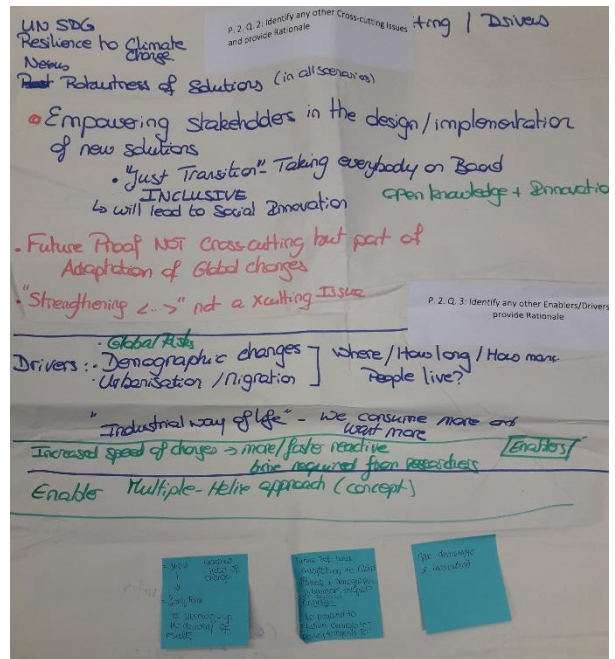 UN SDG
Resilience to Climate
Change
Nexus
Robustness of Solutions (in all scenarios)
P. 2. Q. 2: Identify any other Cross-cutting Issues
and provide Rationale
ting / Drivers
Empowering stakeholders in the design/implementation
of new solutions
• "Just Transition" - Taking everybody on Board
INCLUSIVE
↳ will lead to Social Innovation
open knowledge + Innovation
• Future Proof NOT cross-cutting but part of
Adaptation of Global changes
• "Strengthening <...>" not a Xcutting Issue
P. 2. Q. 3: Identify any other Enablers/Drivers
provide Rationale
• Global Risks
Drivers: • Demographic changes
• Urbanisation / Migration
Where / How long / How many
People live?
"Industrial way of life" - we consume more and
want more
Increased speed of changes → more/faster reactive
time required from researchers
[Enablers]
Enabler Multiple-Helix approach (concept)
change